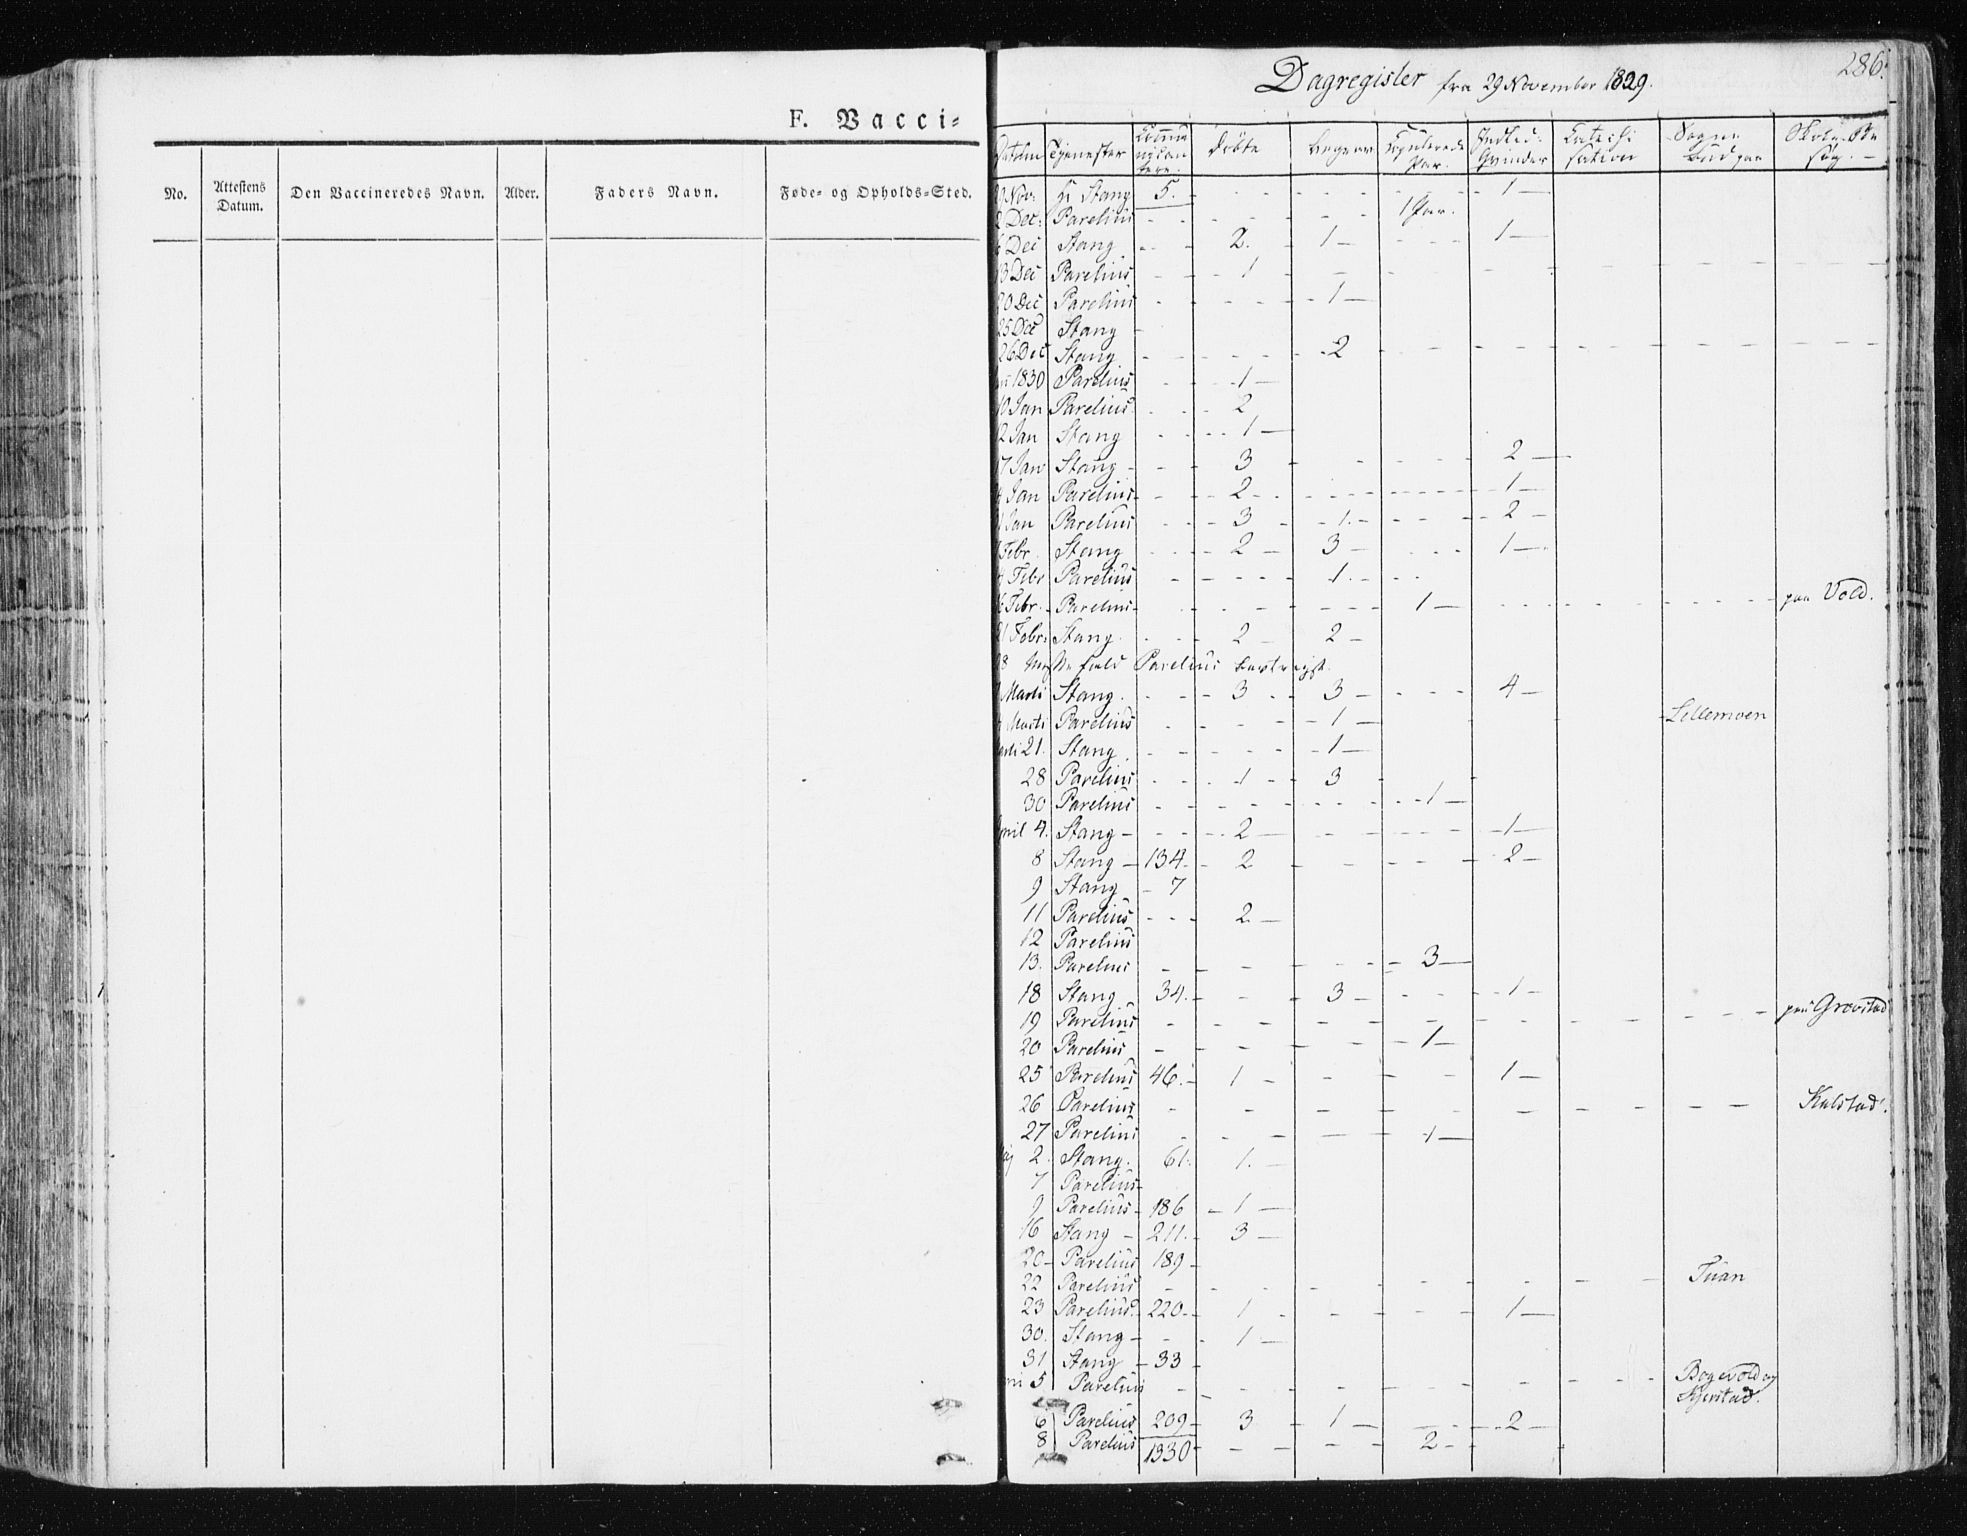 F. Vacci=
No.
Attestens Datum.
Den Vaccineredes Navn.
Alder.
Faders Navn.
Føde= og Opholds=Sted.
286.
Dagregister fra 29 November 1829.
Datum Tjenester Communicantere Döbte Begrav. Copulerede Par. Indled: Qvinder Catechisation Sogne bud paa Skole Besøg.
Nov: Hr Stang 5. 1
2 Dec: Parelius 1 Par.
6 Dec Stang 2. 1 1
13 Dec Parelius 1
20 Dec Parelius 1
25 Dec Stang
26 Dec Stang 2
1830 Parelius 1
10 Jan Parelius 2
12 Jan Stang 1
17 Jan Stang 3 2
Jan Parelius 2 1
Jan Parelius 3 1 2
Febr. Stang 2 3 1
Febr Parelius 1
Febr. Parelius 1 paa Vold.
21 Febr: Stang. 2 2
28 Parelius
Marti Stang. 3 3 4
Marti Parelius 1 Lillemoen
21. Stang 1
28 Parelius 1 3
30 Parelius 1
April 4. Stang 2 1
8 Stang 134 2 2
9 Stang 7
11 Parelius 2
12 Parelius
13. Parelius 3
18 Stang 34. 3 1
19 Parelius paa Grovstad
20 Parelius 1
25 Parelius 46. 1 1
26 Parelius Kalstad.
27 Parelius 1
2. Stang. 61. 1.
7 Parelius
9 Parelius 186 1
16 Stang 211. 3
20 Parelius 189
22 Parelius Tuan
23 Parelius 220 1 1
30. Stang 1
31 Stang 33
5 Parelius Bogevold og
Kjerstad.
6 Parelius 209 3 1 2
8 Parelius 1330 2